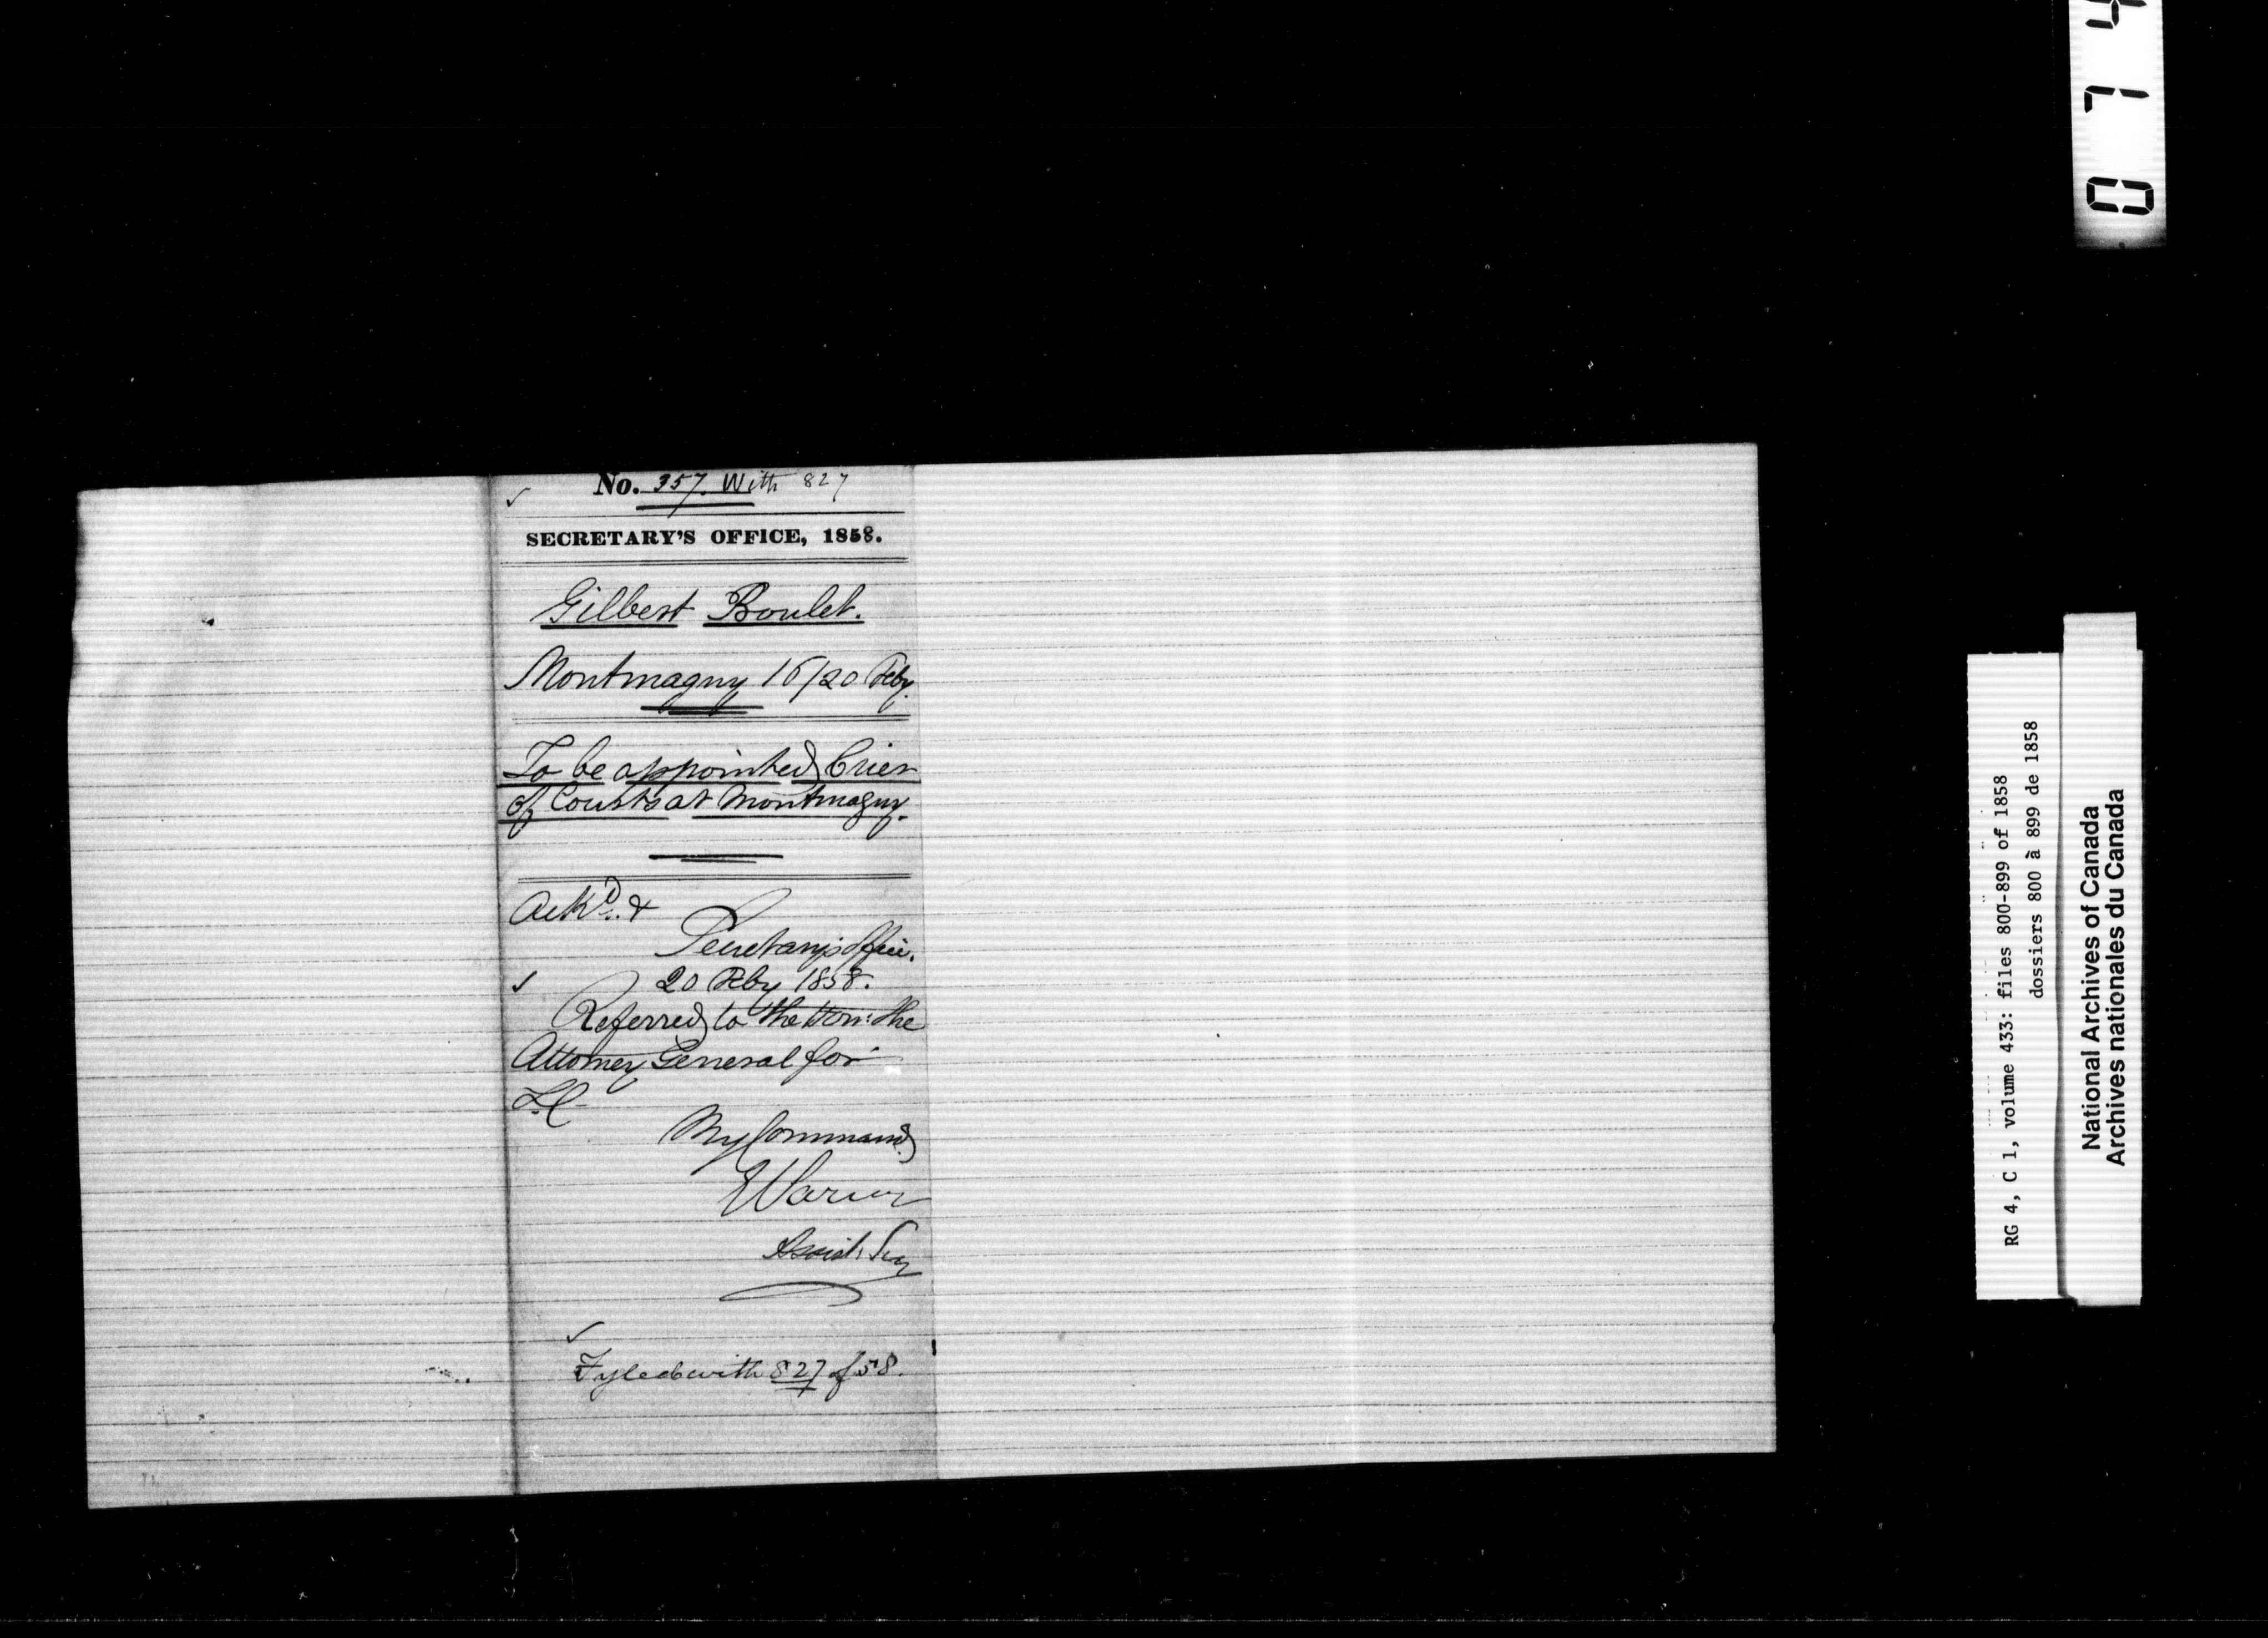 No. 357. With 827
SECRETARY'S OFFICE, 1858.
Gilbert Boulet.
Montmagny 16/20 Feby.
To be appointed Crier
of Courts at Montmagny.
Ackd. &
Secretary's Office.
20 Feby 1858.
Referred to the Hon: the
Attorney General for
L.C.
By Command
Assist. Secy
Fyled with 827 of 58.
0 7 4
RG 4, C 1, volume 433: files 800-899 of 1858
dossiers 800 à 899 de 1858
National Archives of Canada
Archives nationales du Canada